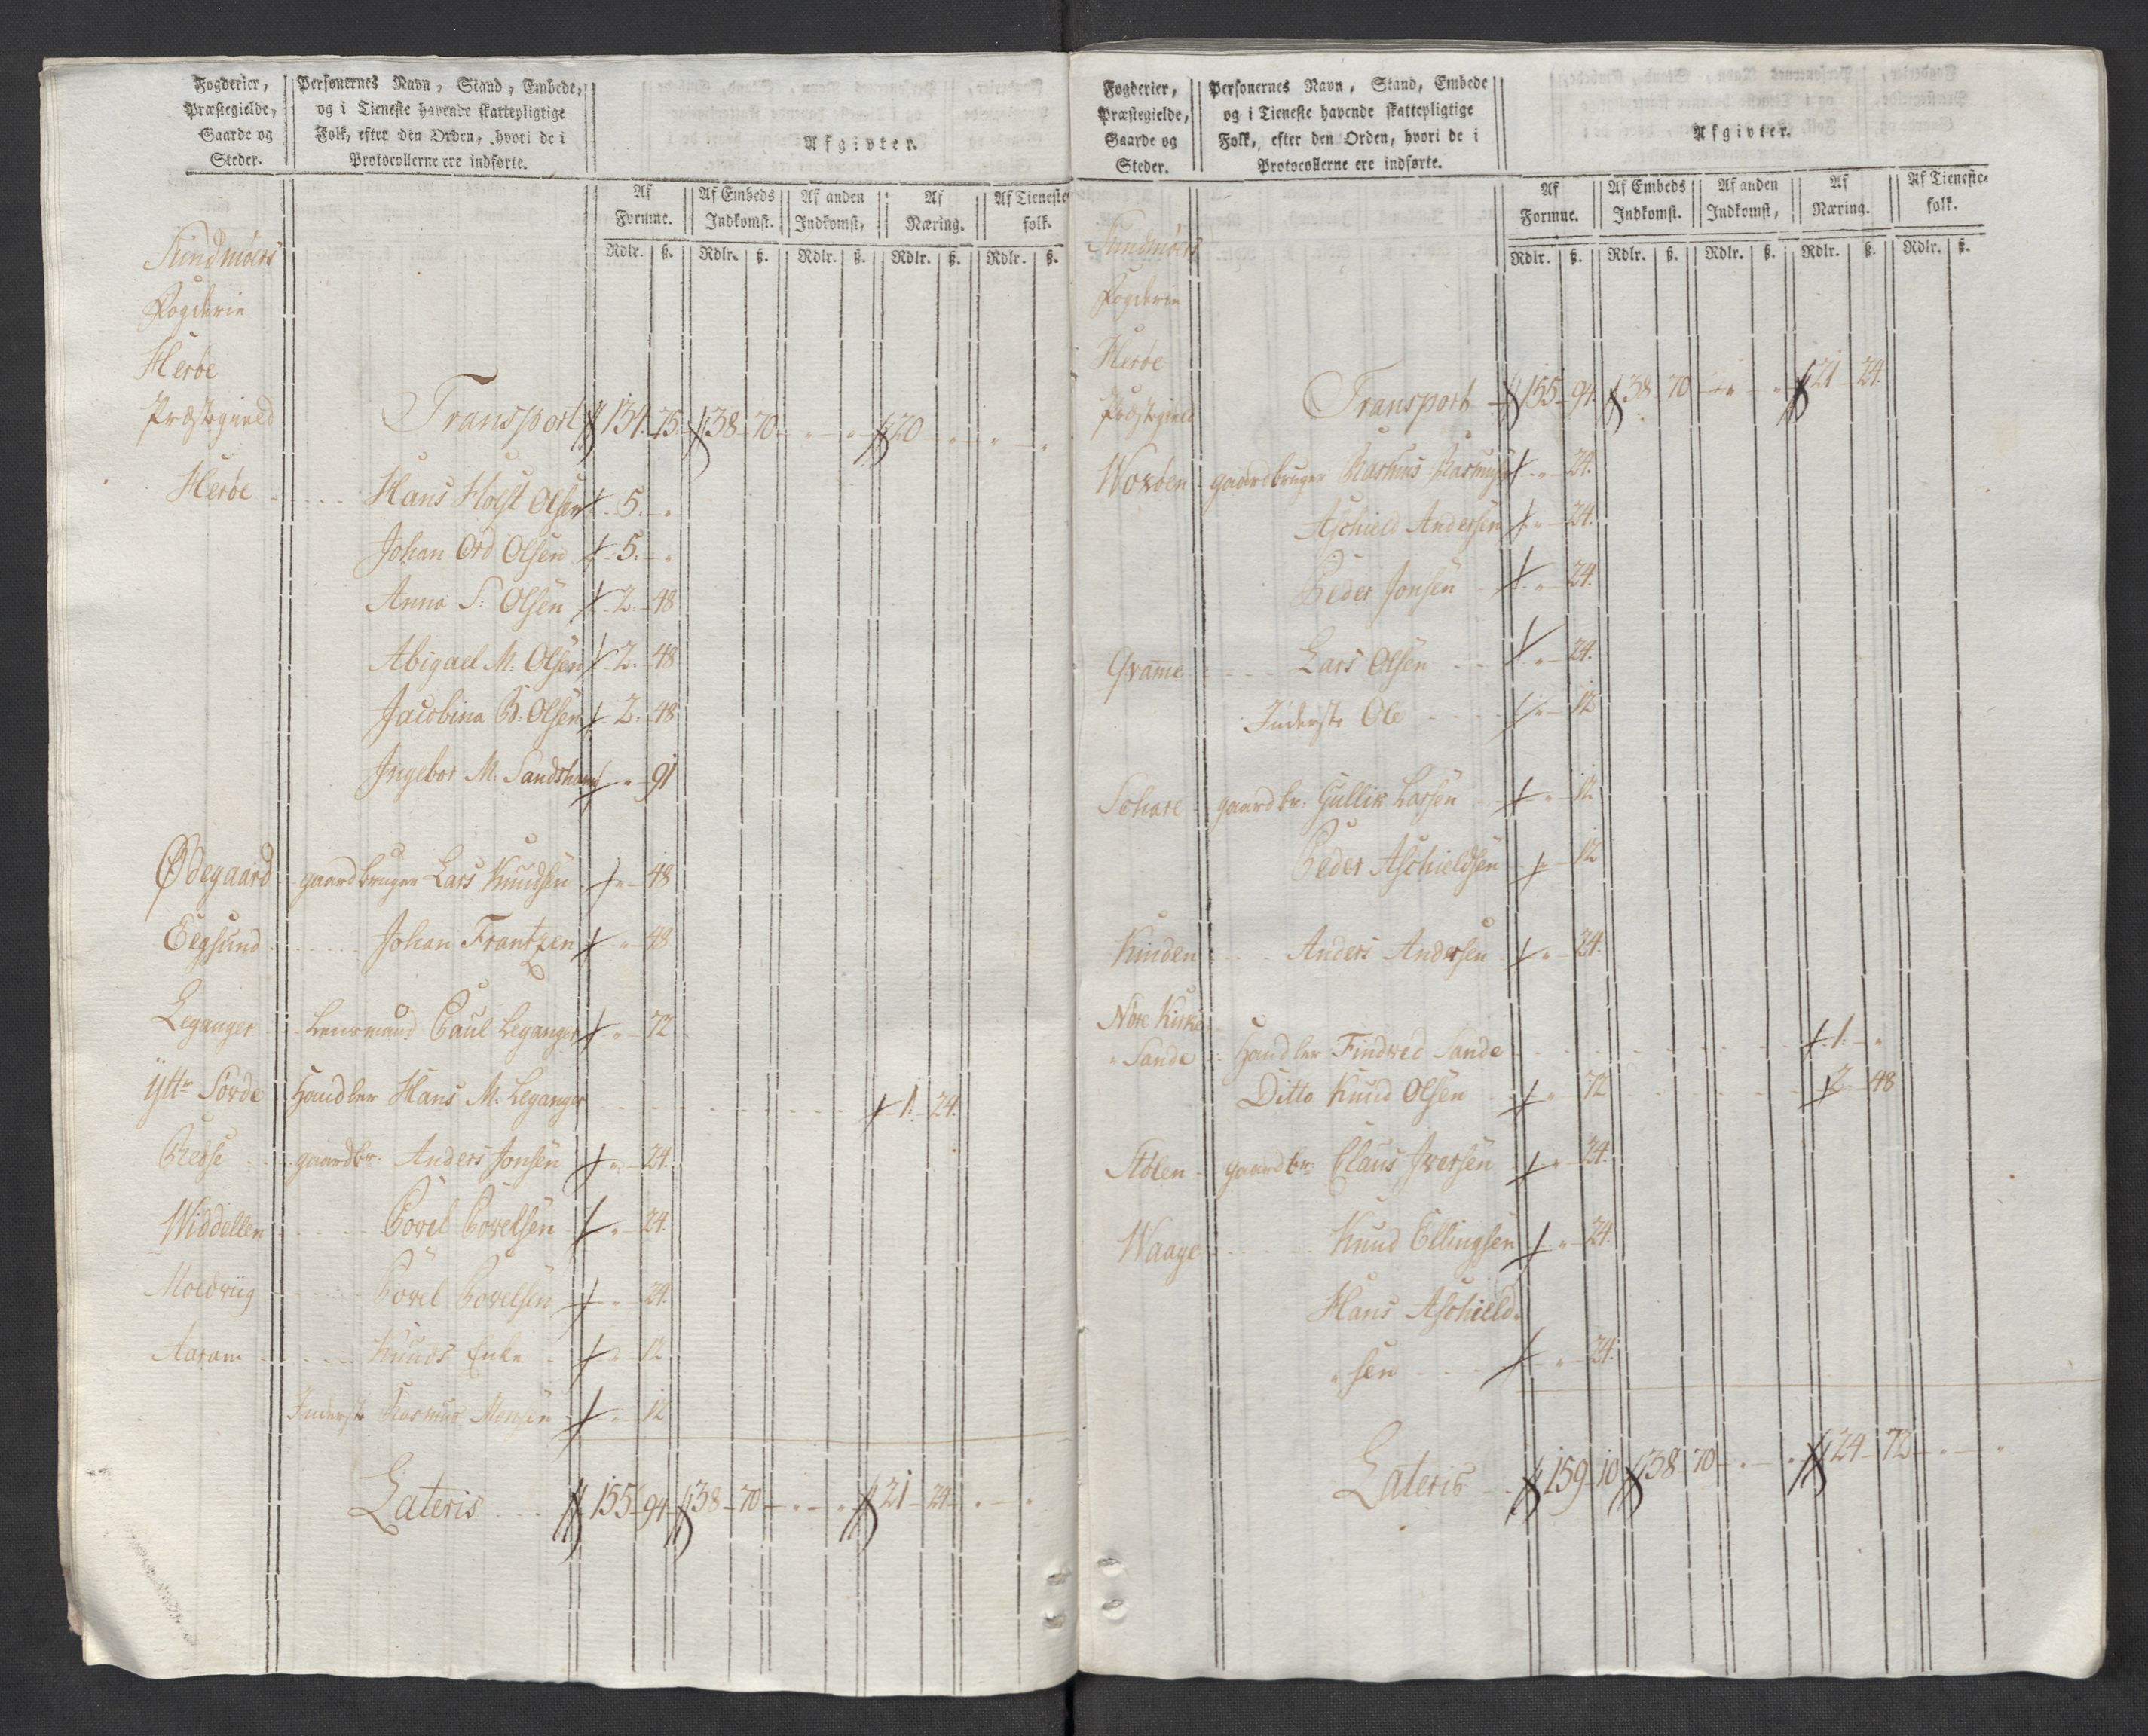 Fogderier, Præstegielde, Gaarde og Steder.
Personernes Navn, Stand, Embede, og i Tieneste havende skattepligtige Folk, efter den Orden, hvori de i Protocollerne ere indførte.
Afgivter.
Af Formue. Af Embeds Indkomst. Af anden Indkomst, Af Næring. Af Tieneste folk.
Rdlr. ß. Rdlr. ß. Rdlr. ß. Rdlr. ß. Rdlr. ß.
Sundmøers
Fogderie
Herøe
Præstegield
Transport 134. 75 138 70 " " 20 " " "
Herøe Hans Holst Olsen 5. "
Johan Ord Olsen 5. "
Anna S: Olsen 2. 48
Abigael M. Olsen 2. 48
Jacobina B. Olsen 2. 48
Ingebor M. Sandshavn " 91
Ødegaard gaardbruger Lars Knudsen " 48
Eegsund Johan Frantzen " 48
Leganger Lensmand Paul Leganger " 72
Ytt: Sørde Handler Hans M. Leganger 1. 24.
gaardbr: Anders Jonsen " 24.
Widdellen Povel Povelsen " 24.
Moldvig Povel Povelsen " 24.
Aaram Knuds Enke " 12
Inderste Rasmus Monsen " 12
Lateris 155 94 138 70 " " 21 24 " "
Fogderier, Præstegielde, Gaarde og Steder.
Personernes Navn, Stand, Embede og i Tieneste havende skattepligtige Folk, efter den Orden, hvori de i Protocollerne ere indførte.
Afgivter.
Af Formue. Af Embeds Indkomst. Af anden Indkomst, Af Næring. Af Tieneste folk.
Rdlr. ß. Rdlr. ß. Rdlr. ß. Rdlr. ß. Rdlr. ß.
Sundmøers
Fogderie
Herøe
Præstegield
Transport 155 94. 138 70 " " 21 24.
Woxøen gaardbruger Rasmus Rasmus: " 24.
Aschield Andersen " 24.
Peder Jonsen " 24.
Qvame Lars Olsen " 24.
Inderste Ole " 12
gaardbr: Gullik Larsen " 12
Peder Aschieldsen " 12
Anders Andersen " 24.
Nøre Kirke
" Sande Handler Findved Sande 1. "
Ditto Knud Olsen " 72 2. 48
Stølen gaardbr: Claus Iversen " 24.
Waage Knud Ellingsen " 24.
Hans Aschield-
" sen " 24.
Lateris 159 10 138 70 " " 24 72 " "